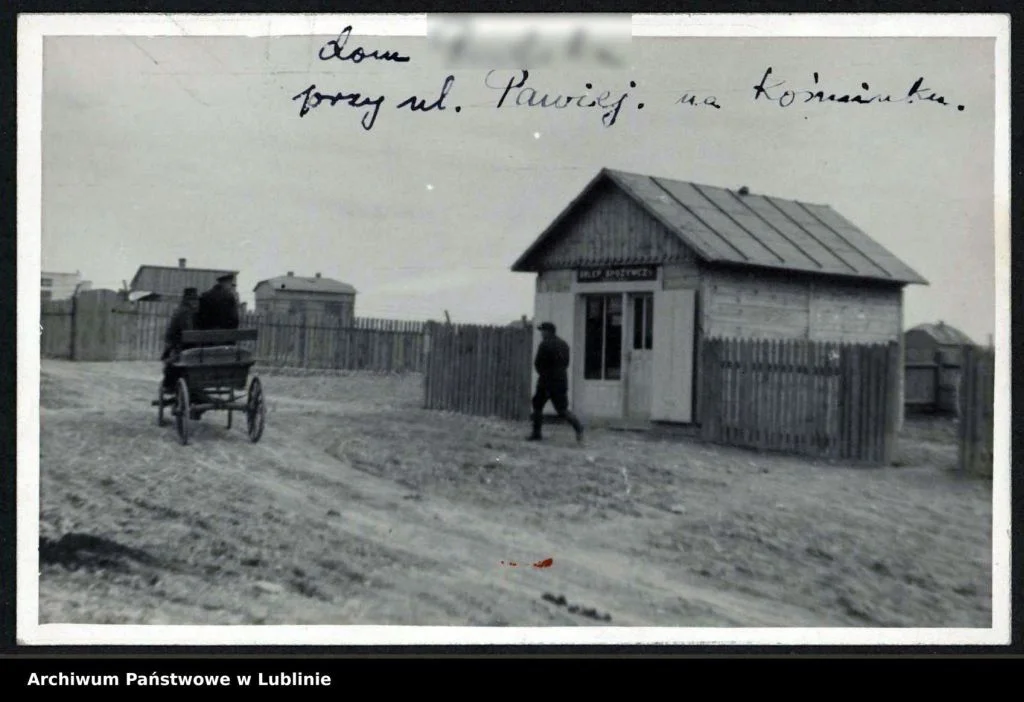 dom
przy ul. Pawiej. na Kośminku.
SKLEP SPOŻYWCZY
Archiwum Państwowe w Lublinie